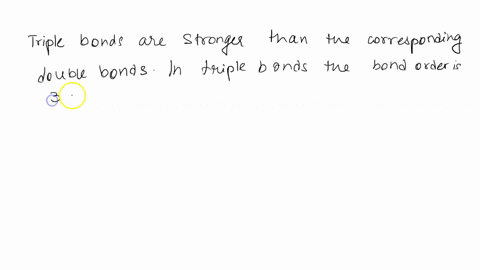 Triple bonds are stronger than the corresponding
double bonds. In triple bonds the bond order is
3.